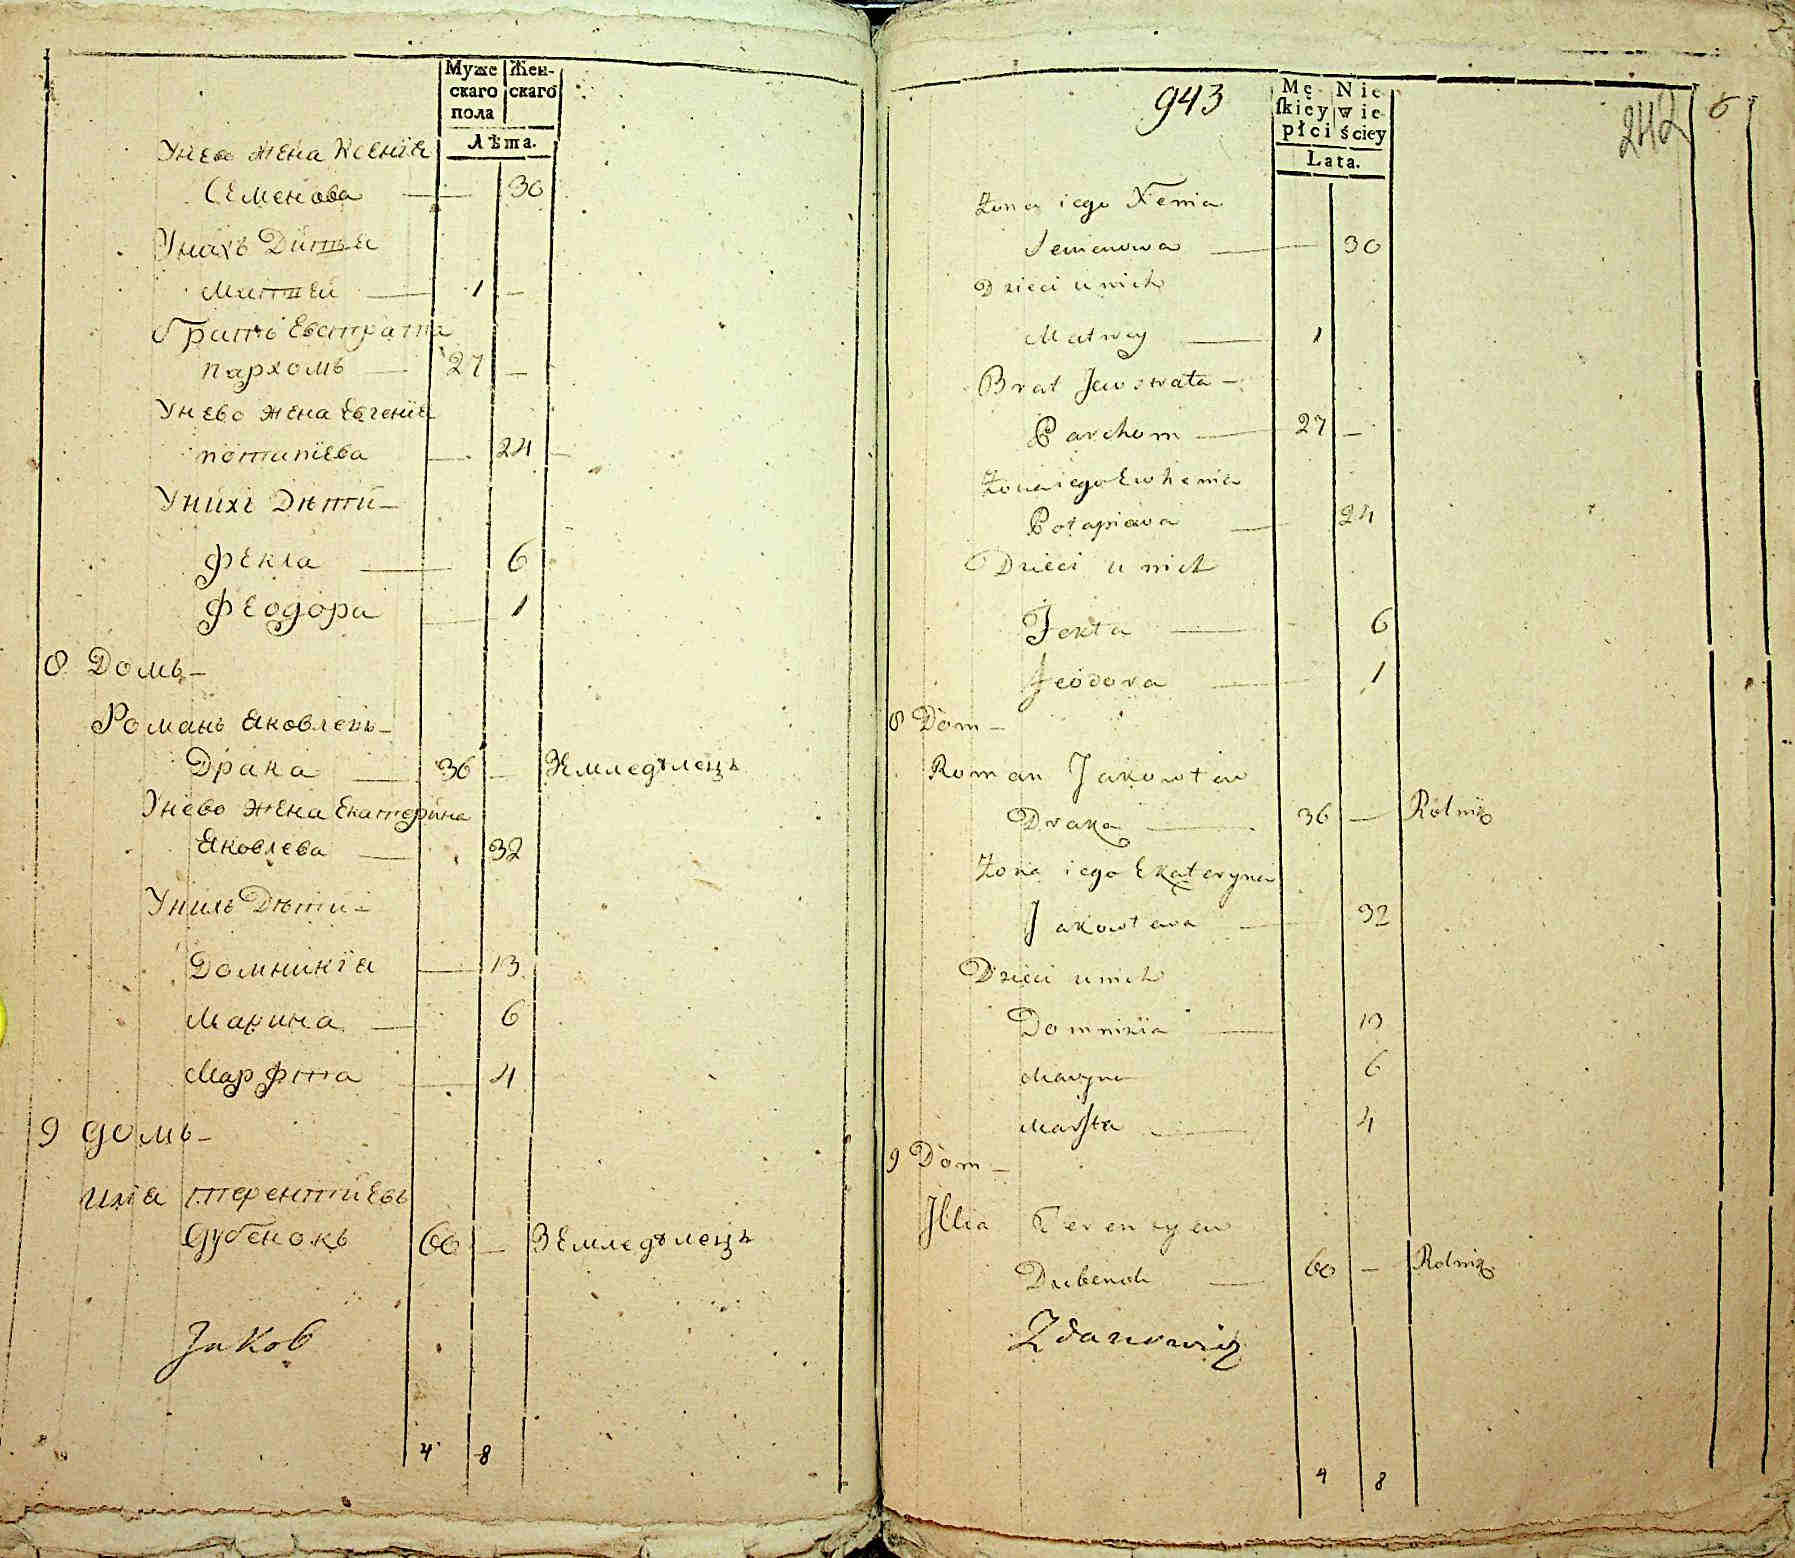 Муже
скаго
пола
Жен-
скаго
Лѣта.
Унево жена Ксенїя
Семенова — 30
Унихъ Дити
Матвей — 1 —
братъ Евстрата
пархомъ — 27 —
Унево жена Евгенїя
потапїева — 24 —
Унихъ Дѣти —
Фекла — 6
Феодора — 1
8 Домъ —
Романъ Яковлевъ —
Драка — 36 — Земледѣлецъ
Унево жена Екатерина
Яковлева — 32
Унихъ Дѣти —
Домникїя — 13
Марина — 6
Марфта — 4
9 домъ —
илїя терентїевъ
Дубенокъ 60 — Земледѣлецъ
Jakob
4 8
943
Mę
ſkiey
płci
Nie
wie
ściey
Lata.
242
6
Żona iego Xenia
Semenowa — 30
Dzieci u nich
Matwey — 1
Brat Jewstrata —
Parchom — 27 —
Żona iego Ewhenia
Potapiewa — 24
Dzieci u nich
Fekła — 6
Feodora — 1
8 Dom —
Roman Jakowlew
Draka — 36 — Rolnik
Żona iego Ekateryna
Jakowlewa — 32
Dzieci u nich
Domnikia — 13
Maryna 6
Marfta — 4
9 Dom —
Illia Terencyew
Dubenok — 60 — Rolnik
Zdanowicz
4 8